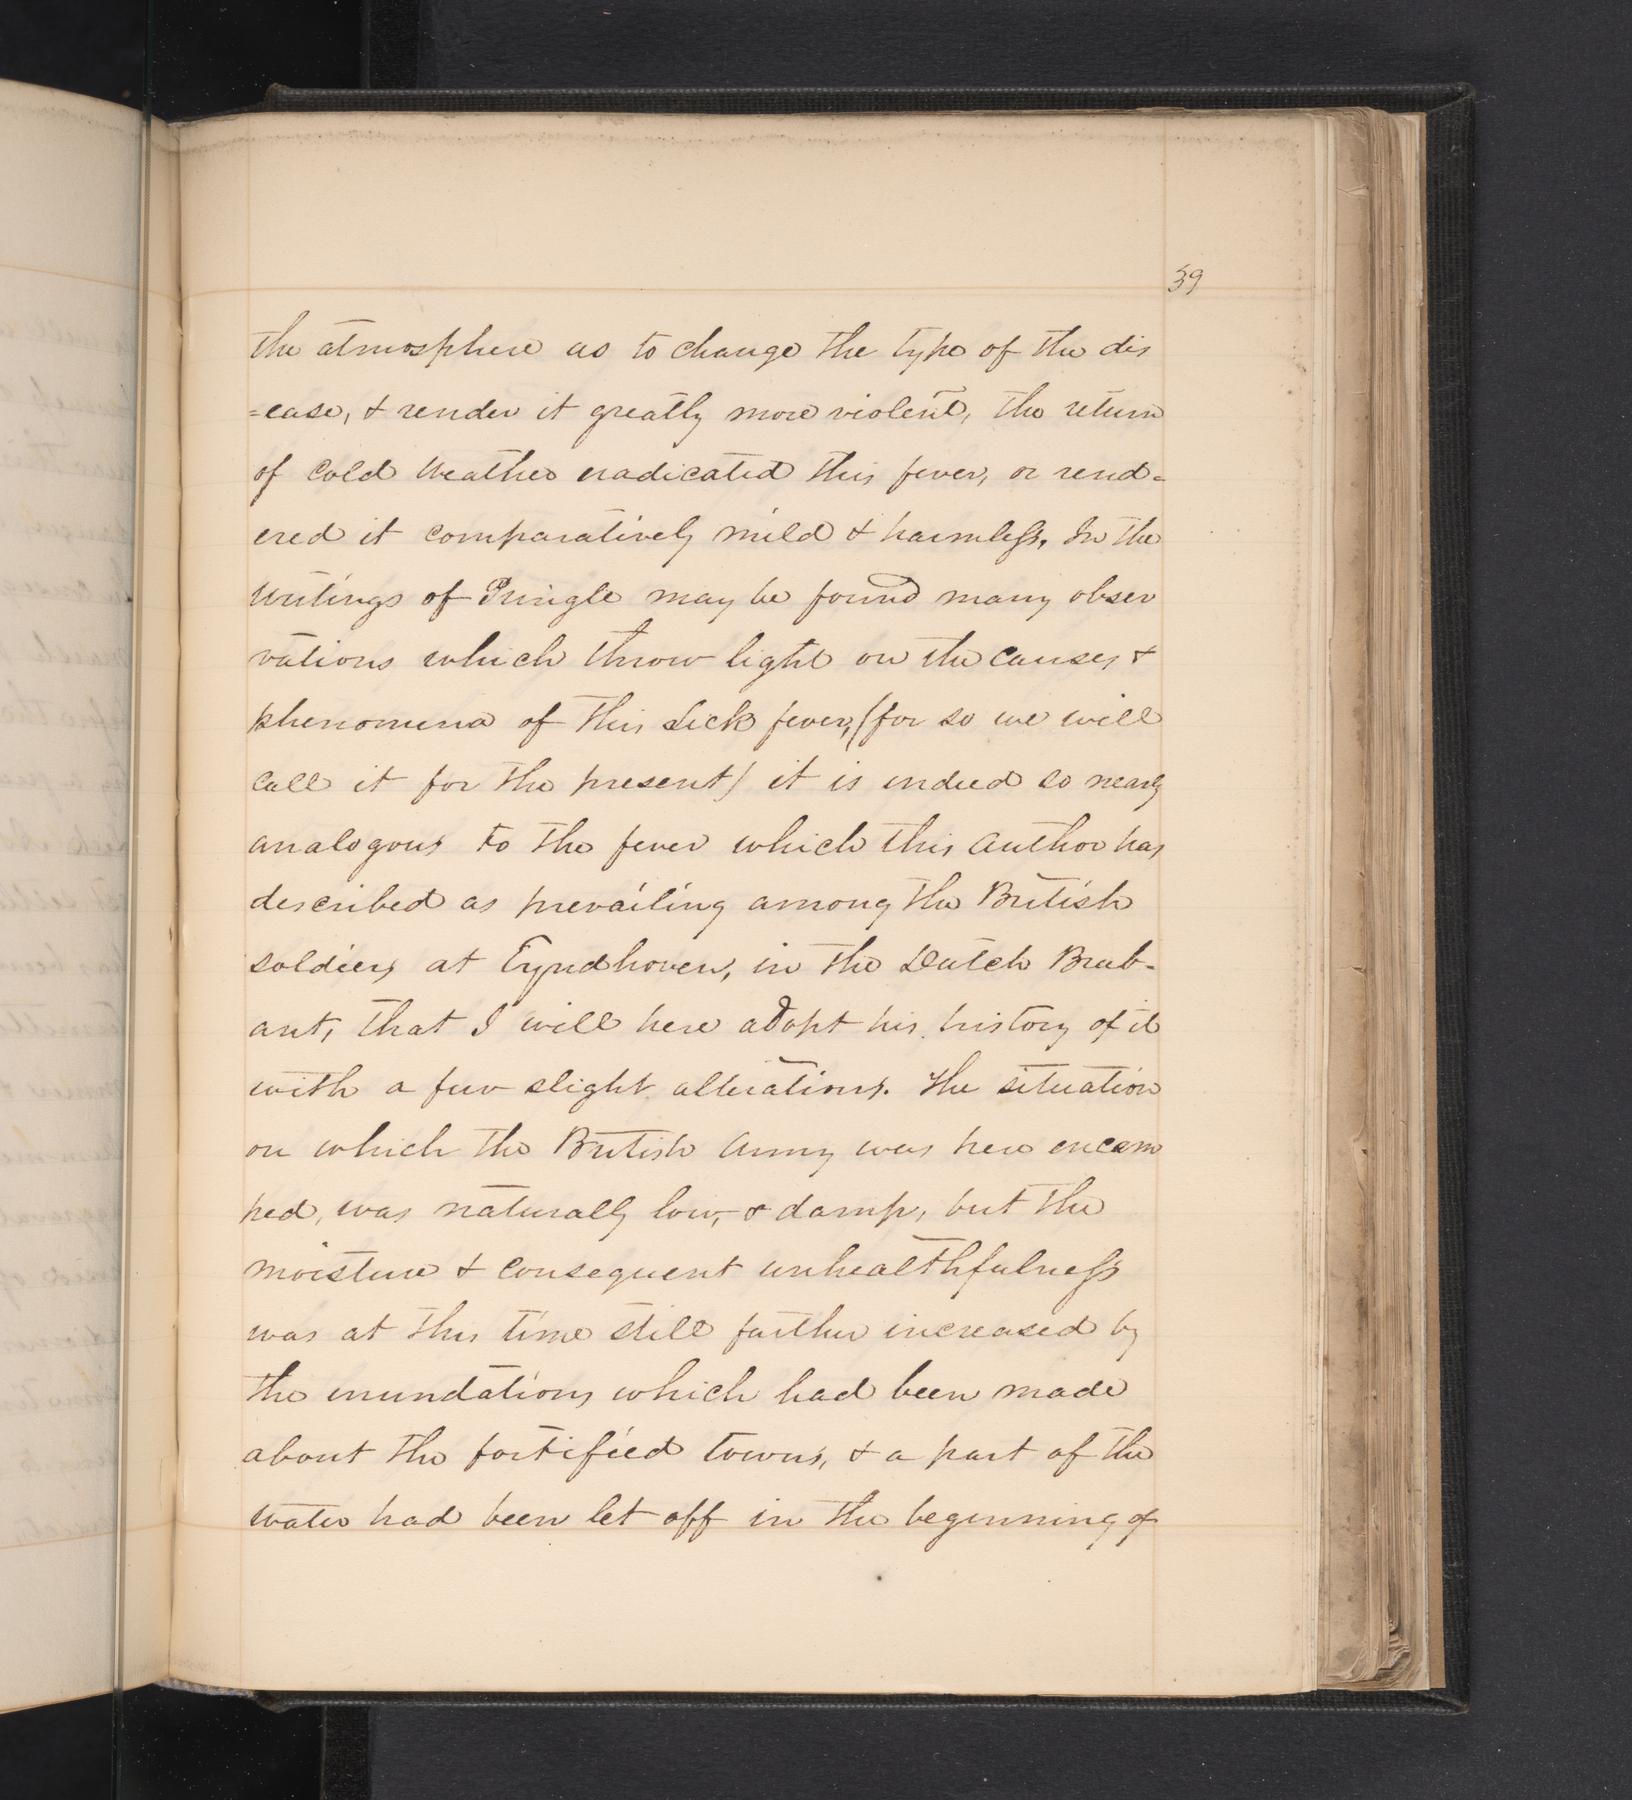 39
the atmosphere as to change the type of the dis
=ease, & render it greatly more violent, the return
of cold weather eradicated this fever, or rend=
ered it comparatively mild & harmless. In the
writings of Pringle may be found many obser
vations which throw light on the causes &
phenomena of this Lick fever, (for so we will
call it for the present) it is indeed so nearly
analogous to the fever which this author has
described as prevailing among the British
soldiers at Eyndhoven, in the Dutch Brab-
ant, that I will here adopt his history of it
with a few slight alterations. The situation
on which the British Army was here encam
ped, was naturally low, & damp, but the
moisture & consequent unhealthfulness
was at this time still farther increased by
the inundations which had been made
about the fortified towns, & a part of the
water had been let off in the beginning of